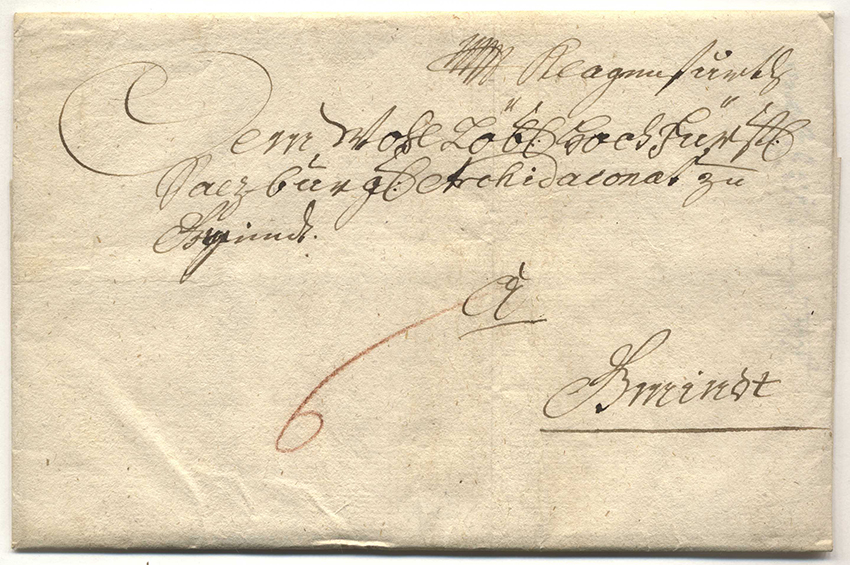 Klagenfurth
Dem Wohl Löbl: Hoch Fürstl:
Salzburgl: Archidiaconat zu
Gmündt.
A
6
Gmündt